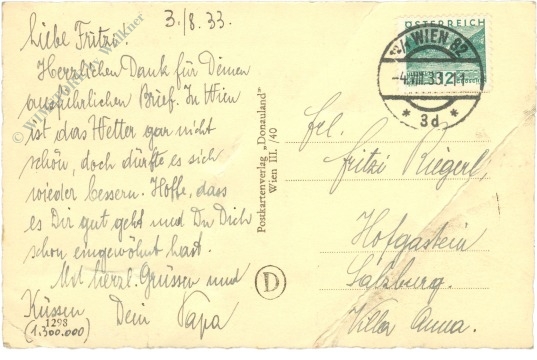 3./8. 33.
Liebe Fritzi.
Herzlichen Dank für Deinen
ausführlichen Brief. In Wien
ist das Wetter gar nicht
schön, doch dürfte es sich
wieder bessern. Hoffe, dass
es Dir gut geht und Du Dich
schon eingewöhnt hast.
Mit herzl. Grüssen und
Küssen Dein Papa
1298
(1.300.000)
Postkartenverlag „Donauland"
Wien III. /40
D
ÖSTERREICH
WIEN 62
-4.VIII.33 12
* 3d *
Frl.
Fritzi Riegerl,
Hofgastein
Salzburg.
Villa Anna.